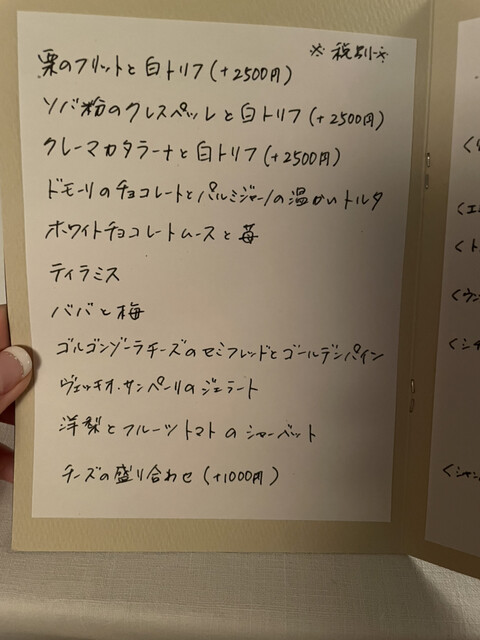 ※ 税別 ※
栗のフリットと白トリフ(+2500円)
ソバ粉のクレスペッレと白トリフ(+2500円)
クレーマカタラーナと白トリフ(+2500円)
ドモーリのチョコレートとパルミジャーノの温かいトルタ
ホワイトチョコレートムースと苺
ティラミス
ババと梅
ゴルゴンゾーラチーズのセミフレッドとゴールデンパイン
ヴェッキオ・サンペーリのジェラート
洋梨とフルーツトマトのシャーベット
チーズの盛り合わせ(+1000円)